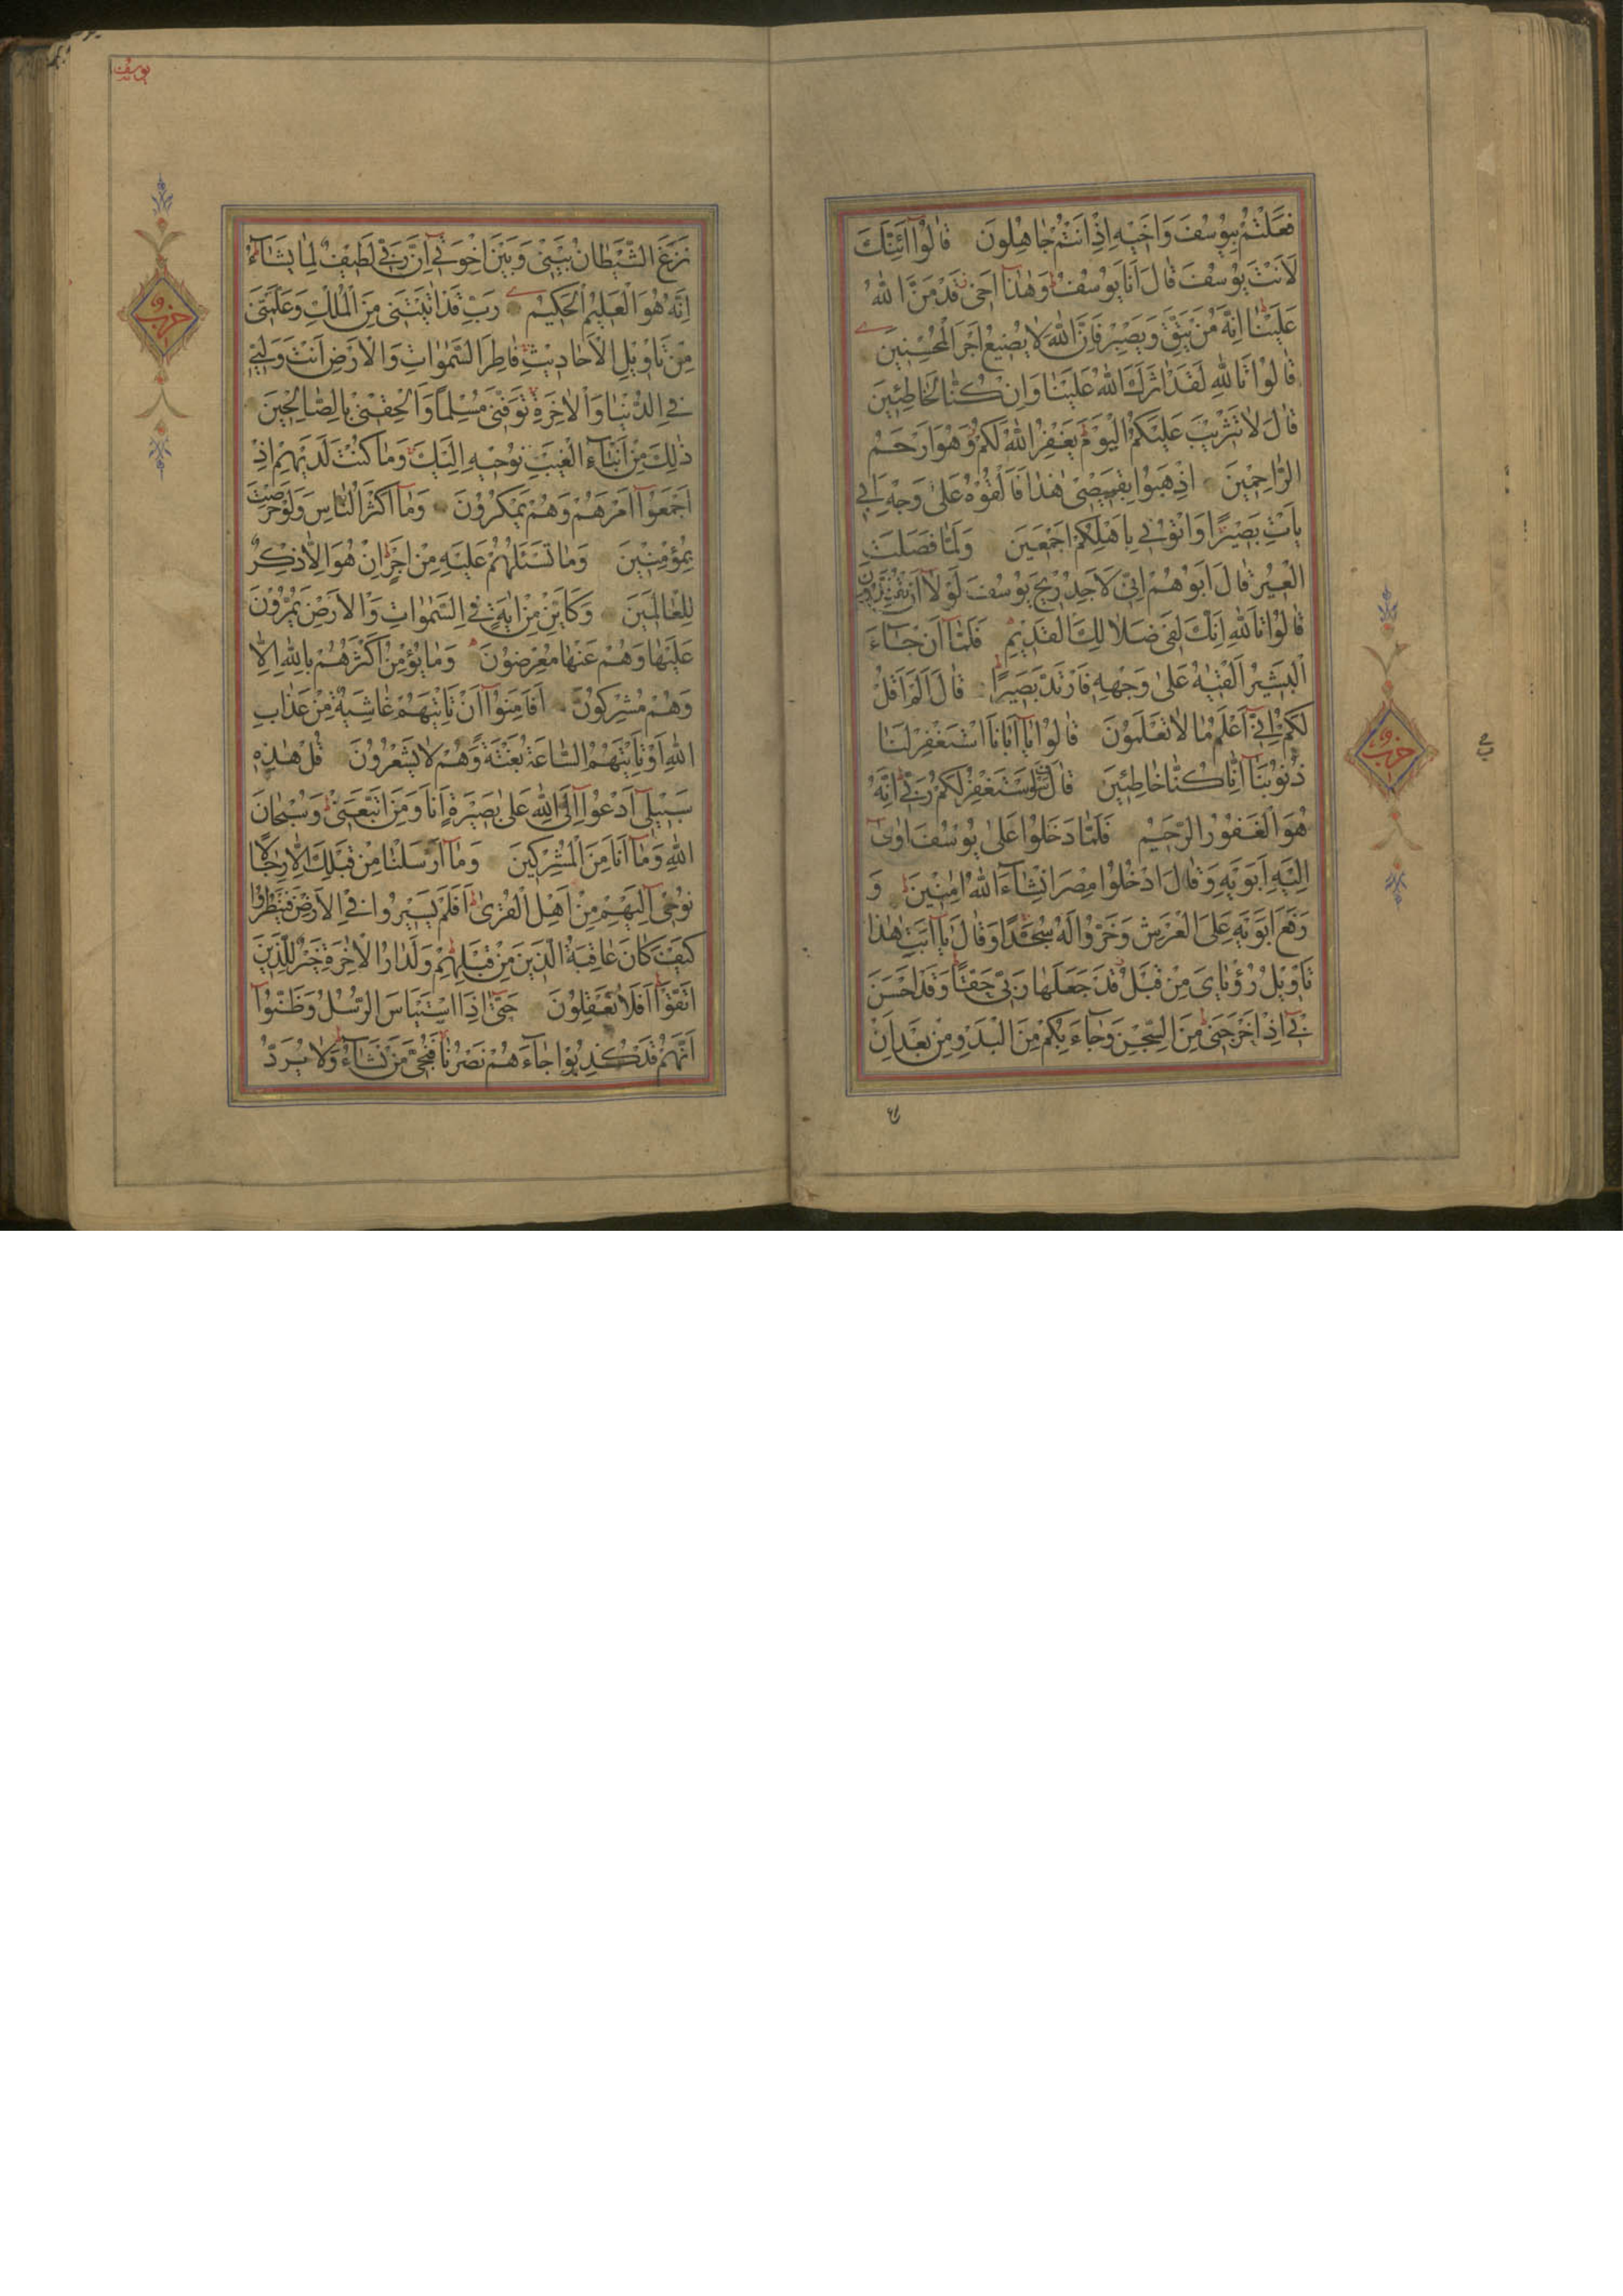 فَعَلْتُمْ بِيُوسُفَ وَاَخٖيهِ اِذْ اَنْتُمْ جَاهِلُونَ قَالُٓوا اَئِنَّكَ
لَاَنْتَ يُوسُفَ قَالَ اَنَا يُوسُفُ وَهٰذَٓا اَخٖى قَدْ مَنَّ اللّٰهُ
عَلَيْنَا اِنَّهُ مَنْ يَتَّقِ وَيَصْبِرْ فَاِنَّ اللّٰهَ لَا يُضٖيعُ اَجْرَ الْمُحْسِنٖينَ
قَالُوا تَاللّٰهِ لَقَدْ اٰثَرَكَ اللّٰهُ عَلَيْنَا وَاِنْ كُنَّا لَخَاطِئٖينَ
قَالَ لَا تَثْرٖيبَ عَلَيْكُمُ الْيَوْمَ يَغْفِرُ اللّٰهُ لَكُمْ وَهُوَ اَرْحَمُ
الرَّاحِمٖينَ اِذْهَبُوا بِقَمٖيصٖى هٰذَا فَاَلْقُوهُ عَلٰى وَجْهِ اَبٖى
يَأْتِ بَصٖيرًا وَأْتُونٖى بِاَهْلِكُمْ اَجْمَعٖينَ وَلَمَّا فَصَلَتِ
الْعٖيرُ قَالَ اَبُوهُمْ اِنّٖى لَاَجِدُ رٖيحَ يُوسُفَ لَوْلَٓا اَنْ تُفَنِّدُونِ
قَالُوا تَاللّٰهِ اِنَّكَ لَفٖى ضَلَالِكَ الْقَدٖيمِ فَلَمَّٓا اَنْ جَٓاءَ
الْبَشٖيرُ اَلْقٰيهُ عَلٰى وَجْهِهٖ فَارْتَدَّ بَصٖيرًا قَالَ اَلَمْ اَقُلْ
لَكُمْ اِنّٖٓى اَعْلَمُ مَا لَا تَعْلَمُونَ قَالُوا يَٓا اَبَانَا اسْتَغْفِرْ لَنَا
ذُنُوبَنَٓا اِنَّا كُنَّا خَاطِئٖينَ قَالَ سَوْفَ اَسْتَغْفِرُ لَكُمْ رَبّٖى اِنَّهُ
هُوَ الْغَفُورُ الرَّحٖيمُ فَلَمَّا دَخَلُوا عَلٰى يُوسُفَ اٰوٰٓى
اِلَيْهِ اَبَوَيْهِ وَقَالَ ادْخُلُوا مِصْرَ اِنْ شَٓاءَ اللّٰهُ اٰمِنٖينَ وَ
رَفَعَ اَبَوَيْهِ عَلَى الْعَرْشِ وَخَرُّوا لَهُ سُجَّدًا وَقَالَ يَٓا اَبَتِ هٰذَا
تَأْوٖيلُ رُؤْيَاىَ مِنْ قَبْلُ قَدْ جَعَلَهَا رَبّٖى حَقًّا وَقَدْ اَحْسَنَ
بٖٓى اِذْ اَخْرَجَنٖى مِنَ السِّجْنِ وَجَٓاءَ بِكُمْ مِنَ الْبَدْوِ مِنْ بَعْدِ اَنْ
حزب
يوسف
نَزَغَ الشَّيْطَانُ بَيْنٖى وَبَيْنَ اِخْوَتٖٓى اِنَّ رَبّٖى لَطٖيفٌ لِمَا يَشَٓاءُ
اِنَّهُ هُوَ الْعَلٖيمُ الْحَكٖيمُ رَبِّ قَدْ اٰتَيْتَنٖى مِنَ الْمُلْكِ وَعَلَّمْتَنٖى
مِنْ تَأْوٖيلِ الْاَحَادٖيثِ فَاطِرَ السَّمٰوَاتِ وَالْاَرْضِ اَنْتَ وَلِيّٖى
فِى الدُّنْيَا وَالْاٰخِرَةِ تَوَفَّنٖى مُسْلِمًا وَاَلْحِقْنٖى بِالصَّالِحٖينَ
ذٰلِكَ مِنْ اَنْبَٓاءِ الْغَيْبِ نُوحٖيهِ اِلَيْكَ وَمَا كُنْتَ لَدَيْهِمْ اِذْ
اَجْمَعُٓوا اَمْرَهُمْ وَهُمْ يَمْكُرُونَ وَمَٓا اَكْثَرُ النَّاسِ وَلَوْ حَرَصْتَ
بِمُؤْمِنٖينَ وَمَا تَسْئَلُهُمْ عَلَيْهِ مِنْ اَجْرٍ اِنْ هُوَ اِلَّا ذِكْرٌ
لِلْعَالَمٖينَ وَكَاَيِّنْ مِنْ اٰيَةٍ فِى السَّمٰوَاتِ وَالْاَرْضِ يَمُرُّونَ
عَلَيْهَا وَهُمْ عَنْهَا مُعْرِضُونَ وَمَا يُؤْمِنُ اَكْثَرُهُمْ بِاللّٰهِ اِلَّا
وَهُمْ مُشْرِكُونَ اَفَاَمِنُٓوا اَنْ تَأْتِيَهُمْ غَاشِيَةٌ مِنْ عَذَابِ
اللّٰهِ اَوْ تَأْتِيَهُمُ السَّاعَةُ بَغْتَةً وَهُمْ لَا يَشْعُرُونَ قُلْ هٰذِهٖ
سَبٖيلٖٓى اَدْعُٓوا اِلَى اللّٰهِ عَلٰى بَصٖيرَةٍ اَنَا وَمَنِ اتَّبَعَنٖى وَسُبْحَانَ
اللّٰهِ وَمَٓا اَنَا مِنَ الْمُشْرِكٖينَ وَمَٓا اَرْسَلْنَا مِنْ قَبْلِكَ اِلَّا رِجَالًا
نُوحٖٓى اِلَيْهِمْ مِنْ اَهْلِ الْقُرٰى اَفَلَمْ يَسٖيرُوا فِى الْاَرْضِ فَيَنْظُرُوا
كَيْفَ كَانَ عَاقِبَةُ الَّذٖينَ مِنْ قَبْلِهِمْ وَلَدَارُ الْاٰخِرَةِ خَيْرٌ لِلَّذٖينَ
اتَّقَوْا اَفَلَا تَعْقِلُونَ حَتّٰٓى اِذَا اسْتَيْاَسَ الرُّسُلُ وَظَنُّٓوا
اَنَّهُمْ قَدْ كُذِبُوا جَٓاءَهُمْ نَصْرُنَا فَنُجِّىَ مَنْ نَشَٓاءُ وَلَا يُرَدُّ
حزب